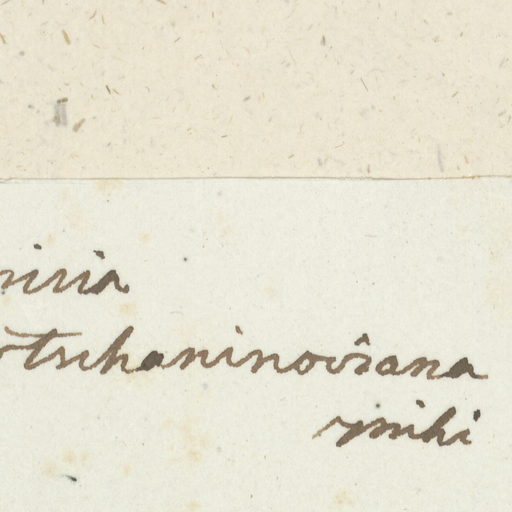 isia
tschaninoviana
mihi